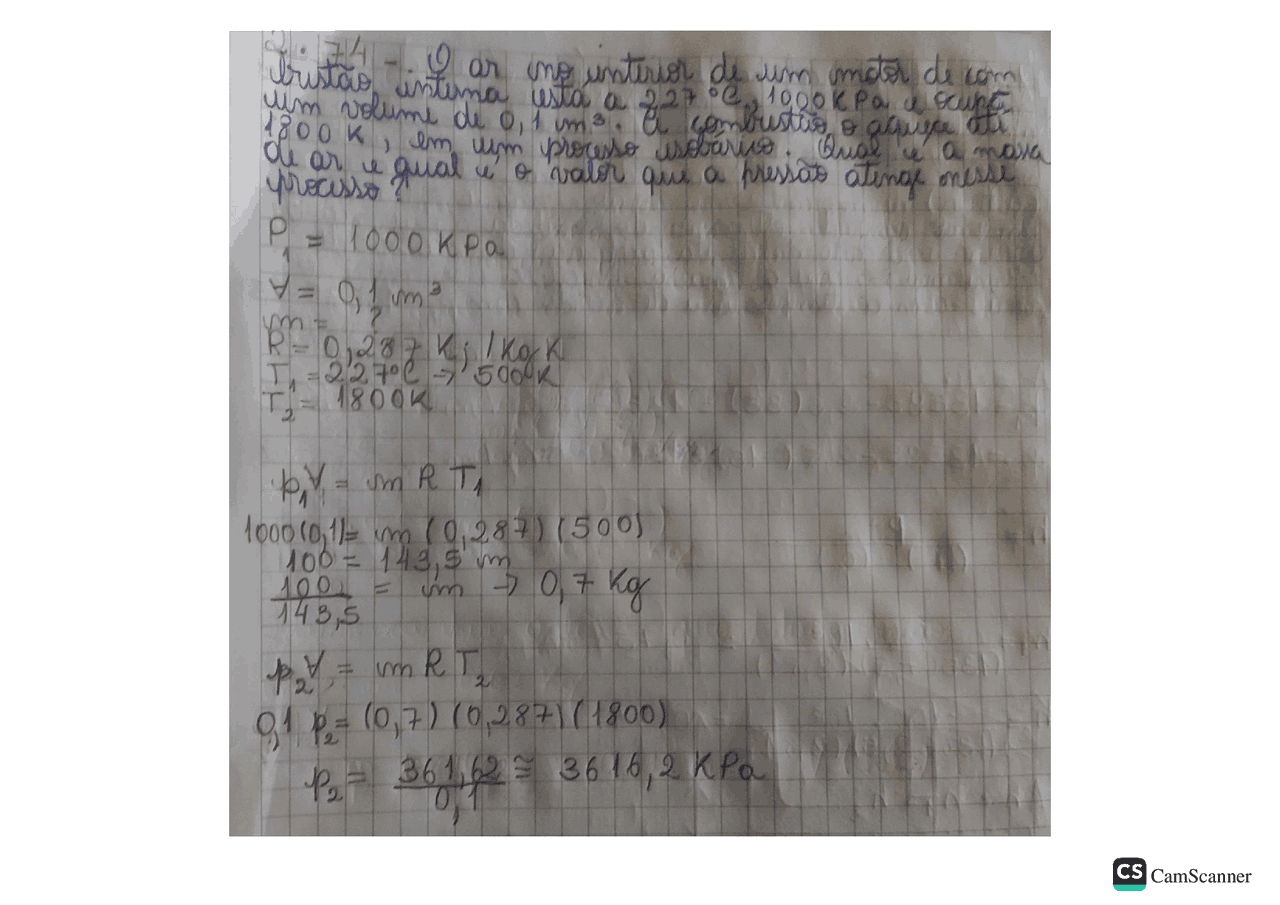 2.74 - O ar no interior de um motor de com
bustão interna está a 227 °C, 1000 KPa e ocupa
um volume de 0,1 m³. A combustão o aqueça até
1800 K, em um processo isobárico. Qual é a massa
de ar e qual é o valor que a pressão atinge nesse
processo?
P₁ = 1000 KPa
∀ = 0,1 m³
m = ?
R = 0,287 Kj/Kg K
T₁ = 227°C → 500 K
T₂ = 1800K
p₁∀ = m R T₁
1000(0,1) = m (0,287) (500)
100 = 143,5 m
100/143,5 = m → 0,7 Kg
p₂∀ = m R T₂
0,1 p₂ = (0,7) (0,287) (1800)
p₂ = 361,62/0,1 ≅ 3616,2 KPa
CS CamScanner